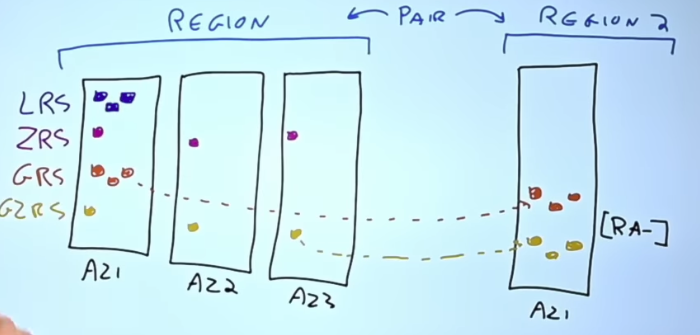 REGION ← PAIR → REGION 2
LRS
ZRS
GRS
GZRS
[RA-]
AZ1 AZ2 AZ3 AZ1